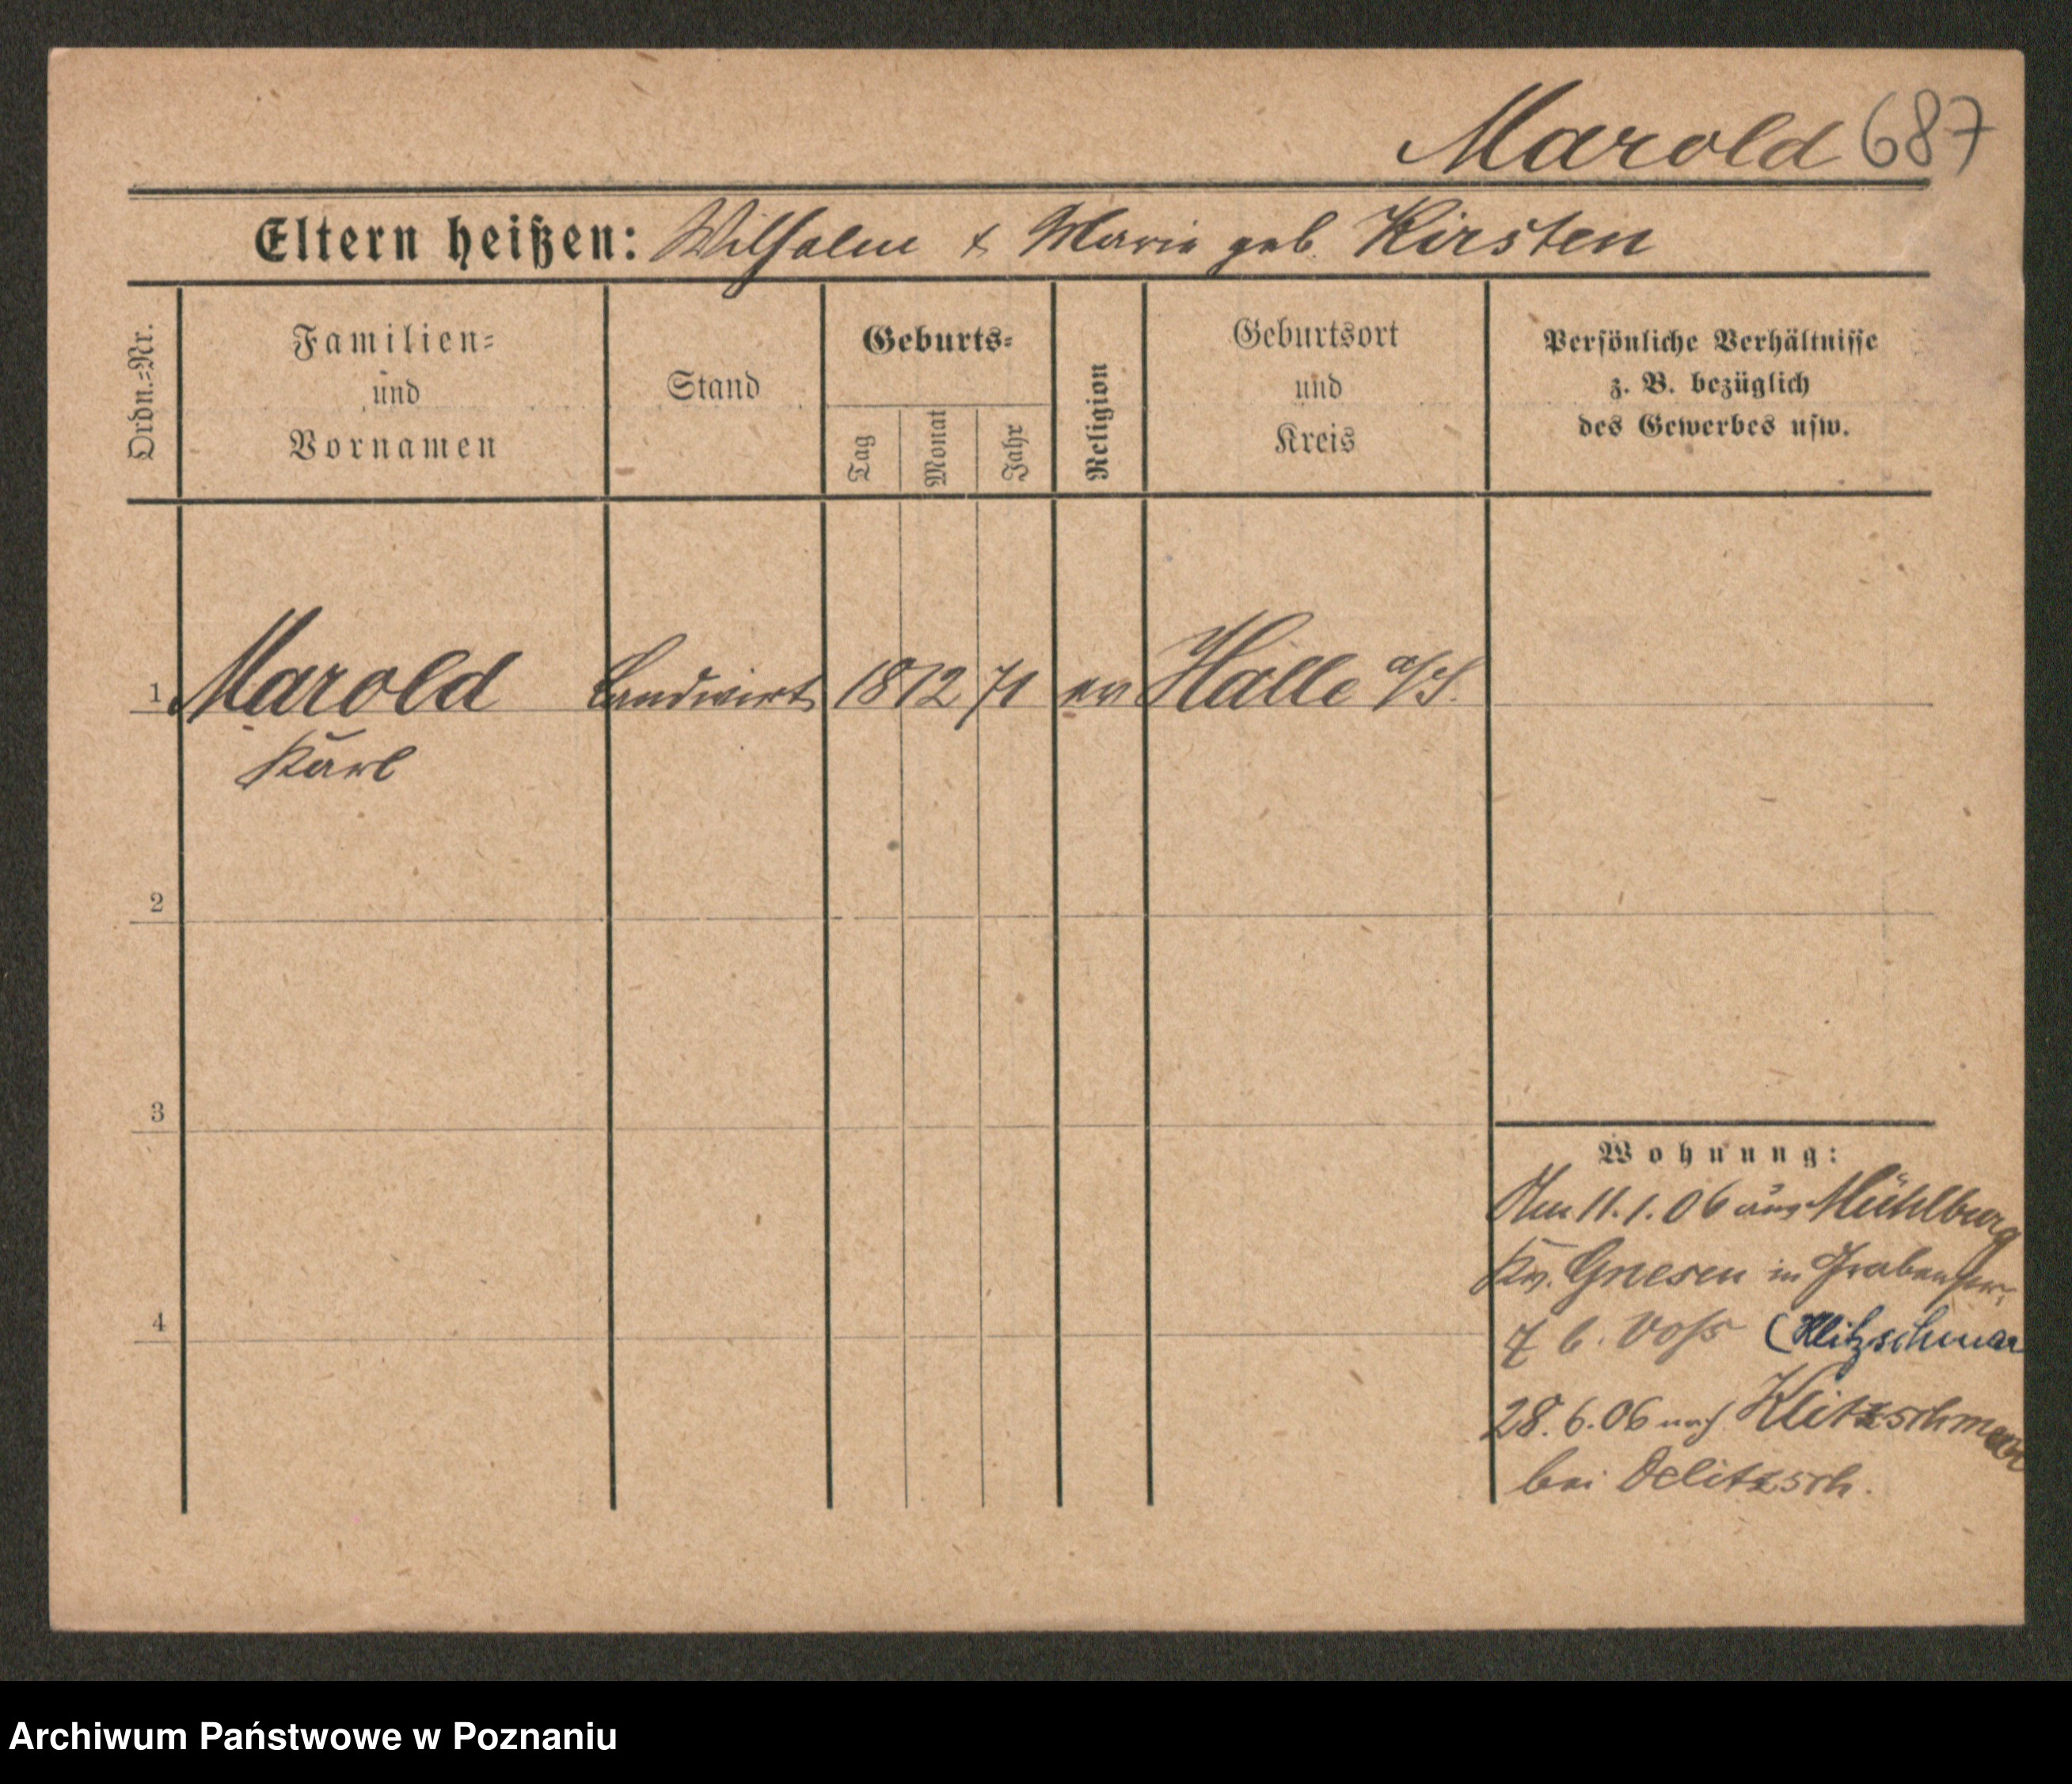 Marold 687
Eltern heißen: Wilhelm & Marie geb. Kirsten
Ordn.=Nr.
Familien=
und
Vornamen
Stand
Geburts=
Tag
Monat
Jahr
Religion
Geburtsort
und
Kreis
Persönliche Verhältnisse
z. B. bezüglich
des Gewerbes usw.
1 Marold Landwirt 18 12 71 ev Halle a/S.
Karl
2
3
4
Wohnung:
Am 11.1.06 aus Mühlburg
Kr. Gnesen in
7 b. Voß (Klitzschmar
28.6.06 nach Klitzschmar
bei Delitzsch.
Archiwum Państwowe w Poznaniu